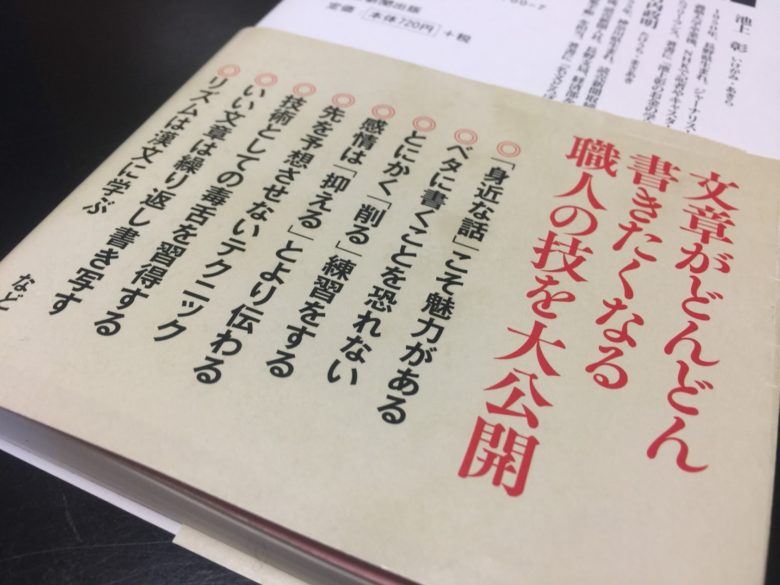 池上 彰 いけがみ・あきら
1950年、長野県生まれ。ジャーナリスト
新聞出版
定価：本体720円＋税
文章がどんどん
書きたくなる
職人の技を大公開
◎「身近な話」こそ魅力がある
◎ベタに書くことを恐れない
◎とにかく「削る」練習をする
◎感情は「抑える」とより伝わる
◎先を予想させないテクニック
◎技術としての毒舌を習得する
◎いい文章は繰り返し書き写す
◎リズムは漢文に学ぶ
など